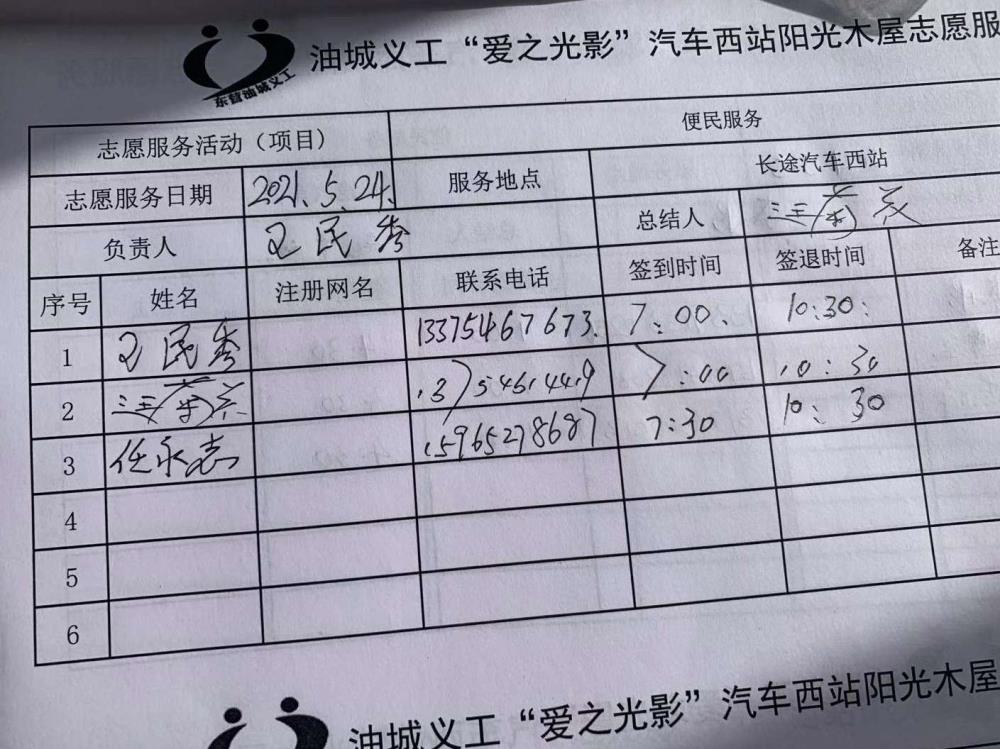 油城义工“爱之光影”汽车西站阳光木屋志愿服
东营油城义工
志愿服务活动（项目） 便民服务
志愿服务日期 2021.5.24. 服务地点 长途汽车西站
负责人 民秀 总结人
序号 姓名 注册网名 联系电话 签到时间 签退时间 备注
1 民秀 13375467673. 7:00. 10:30:
2 7:00 10:30
3 任永志 15965278687 7:30 10:30
4
5
6
油城义工“爱之光影”汽车西站阳光木屋